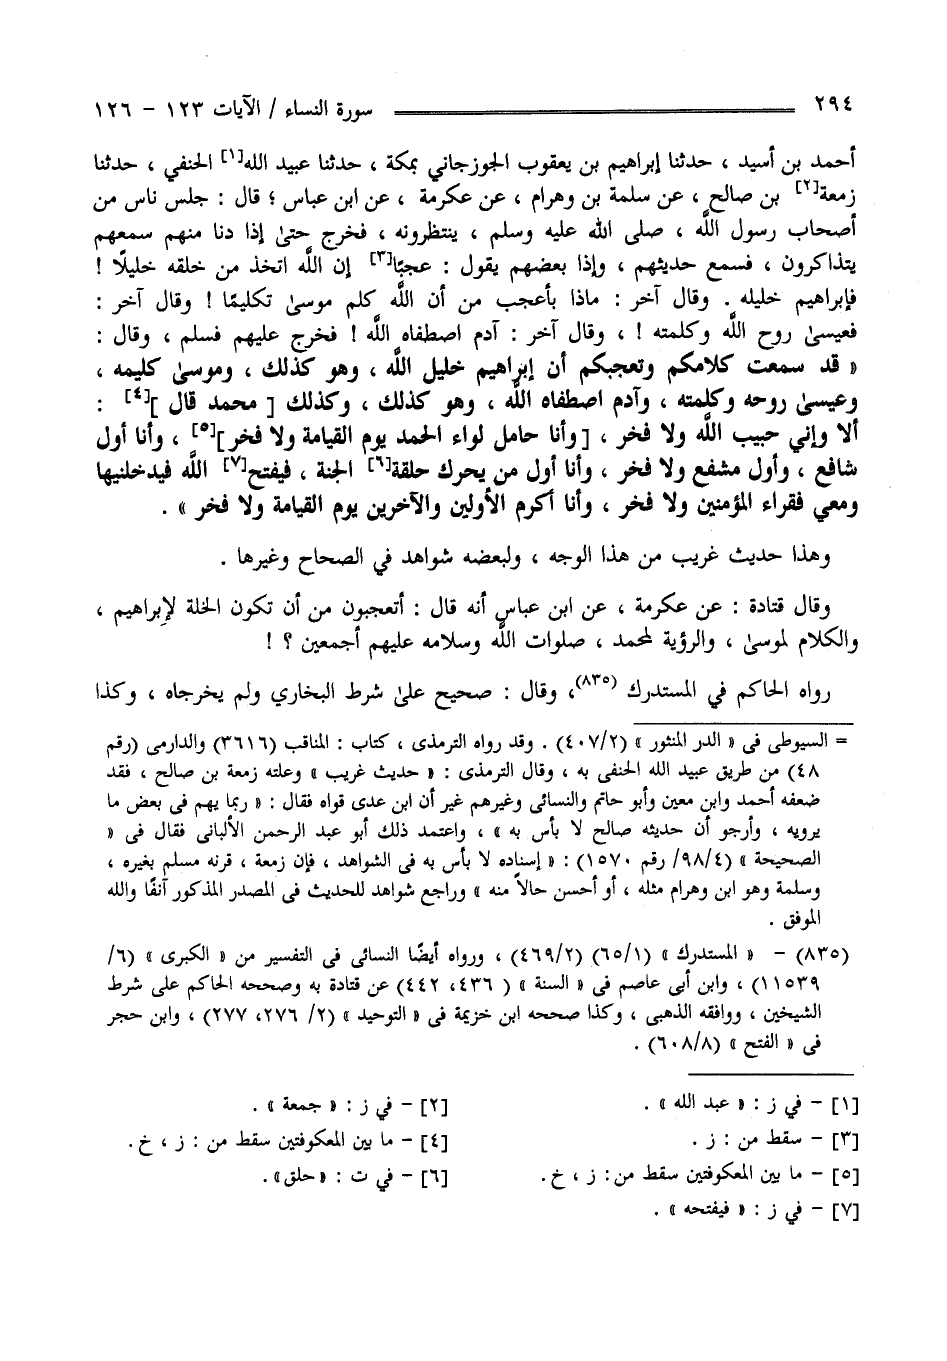 ٢٩٤ سورة النساء / الآيات ١٢٣ - ١٢٦
أحمد بن أسيد ، حدثنا إبراهيم بن يعقوب الجوزجاني بمكة ، حدثنا عبيد الله[١] الحنفي ، حدثنا
زمعة[٢] بن صالح ، عن سلمة بن وهرام ، عن عكرمة ، عن ابن عباس ؛ قال : جلس ناس من
أصحاب رسول اللَّه ، صلى الله عليه وسلم ، ينتظرونه ، فخرج حتىٰ إذا دنا منهم سمعهم
يتذاكرون ، فسمع حديثهم ، وإذا بعضهم يقول : عجبًا[٣] إن اللَّه اتخذ من خلقه خليلًا !
فإبراهيم خليله . وقال آخر : ماذا بأعجب من أن اللَّه كلم موسىٰ تكليمًا ! وقال آخر :
فعيسىٰ روح اللَّه وكلمته ! ، وقال آخر : آدم اصطفاه اللَّه ! فخرج عليهم فسلم ، وقال :
« قد سمعت كلامكم وتعجبكم أن إبراهيم خليل اللَّه ، وهو كذلك ، وموسىٰ كليمه ،
وعيسىٰ روحه وكلمته ، وآدم اصطفاه اللَّه ، وهو كذلك ، وكذلك [ محمد قال ][٤] :
ألا وإني حبيب اللَّه ولا فخر ، [وأنا حامل لواء الحمد يوم القيامة ولا فخر][٥] ، وأنا أول
شافع ، وأول مشفع ولا فخر ، وأنا أول من يحرك حلقة[٦] الجنة ، فيفتح[٧] اللَّه فيدخلنيها
ومعي فقراء المؤمنين ولا فخر ، وأنا أكرم الأولين والآخرين يوم القيامة ولا فخر » .
وهذا حديث غريب من هذا الوجه ، ولبعضه شواهد في الصحاح وغيرها .
وقال قتادة : عن عكرمة ، عن ابن عباس أنه قال : أتعجبون من أن تكون الخلة لإبراهيم ،
والكلام لموسىٰ ، والرؤية لمحمد ، صلوات اللَّه وسلامه عليهم أجمعين ؟ !
رواه الحاكم في المستدرك (٨٣٥)، وقال : صحيح علىٰ شرط البخاري ولم يخرجاه ، وكذا
= السيوطى فى « الدر المنثور » (٤٠٧/٢) . وقد رواه الترمذى ، كتاب : المناقب (٣٦١٦) والدارمى (رقم
٤٨) من طريق عبيد الله الحنفى به ، وقال الترمذى : « حديث غريب » وعلته زمعة بن صالح ، فقد
ضعفه أحمد وابن معين وأبو حاتم والنسائى وغيرهم غير أن ابن عدى قواه فقال : « ربما يهم فى بعض ما
يرويه ، وأرجو أن حديثه صالح لا بأس به » ، واعتمد ذلك أبو عبد الرحمن الألبانى فقال فى «
الصحيحة » (٩٨/٤/ رقم ١٥٧٠) : « إسناده لا بأس به فى الشواهد ، فإن زمعة ، قرنه مسلم بغيره ،
وسلمة وهو ابن وهرام مثله ، أو أحسن حالاً منه » وراجع شواهد للحديث فى المصدر المذكور آنفًا والله
الموفق .
(٨٣٥) - « المستدرك » (٦٥/١) (٤٦٩/٢) ، ورواه أيضًا النسائى فى التفسير من « الكبرى » (٦/
١١٥٣٩) ، وابن أبى عاصم فى « السنة » ( ٤٣٦، ٤٤٢) عن قتادة به وصححه الحاكم على شرط
الشيخين ، ووافقه الذهبى ، وكذا صححه ابن خزيمة فى « التوحيد » (٢/ ٢٧٦، ٢٧٧) ، وابن حجر
فى « الفتح » (٦٠٨/٨) .
[١] - في ز : « عبد الله » . [٢] - في ز : « جمعة » .
[٣] - سقط من : ز . [٤] - ما بين المعكوفتين سقط من : ز ، خ .
[٥] - ما بين المعكوفتين سقط من: ز ، خ . [٦] - في ت : « حلق» .
[٧] - في ز : « فيفتحه » .